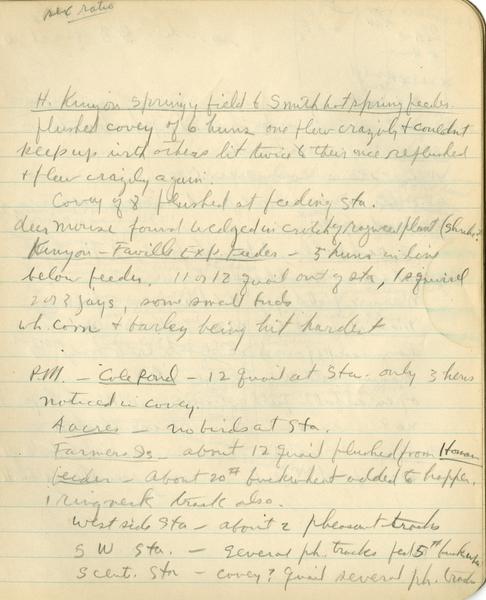 sex ratio
H. Kunyon springy field to Smith hot spring feeder.
flushed covey of 6 huns one flew crazily & couldnt
keep up with others lit twice to their once reflushed
& flew crazily again.
Covey of 8 flushed at feeding sta.
deer mouse found wedged in crotch ragweed plant (shrike?
Kunyon - Faville Exp. Feeder - 5 huns in line
below feeder. 11 or 12 quail out of sta, 1 squirrel
2 or 3 jays, some small birds
wh. corn & barley being hit hardest
P.M. - Cole Pond - 12 quail at Sta. only 3 hens
noticed in covey.
4 acres - no birds at Sta.
Farmers Is - about 12 quail flushed from
feeder - about 20# buckwheat added to hopper.
1 ringneck track also.
West side Sta - about 2 pheasant tracks
S W Sta. - several ph. tracks fed 5#
S cent. Sta - covey? quail several ph. tracks